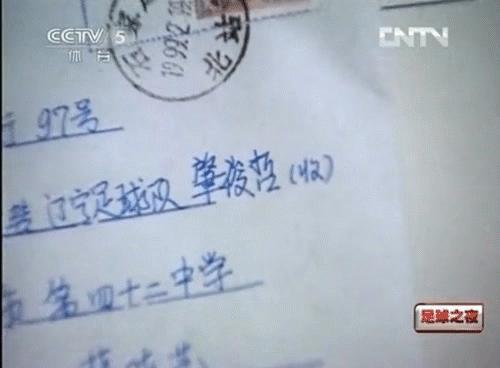 CCTV 5
体育
CNTV
北站
97号
辽宁足球队 肇俊哲(收)
第四十二中学
足球之夜